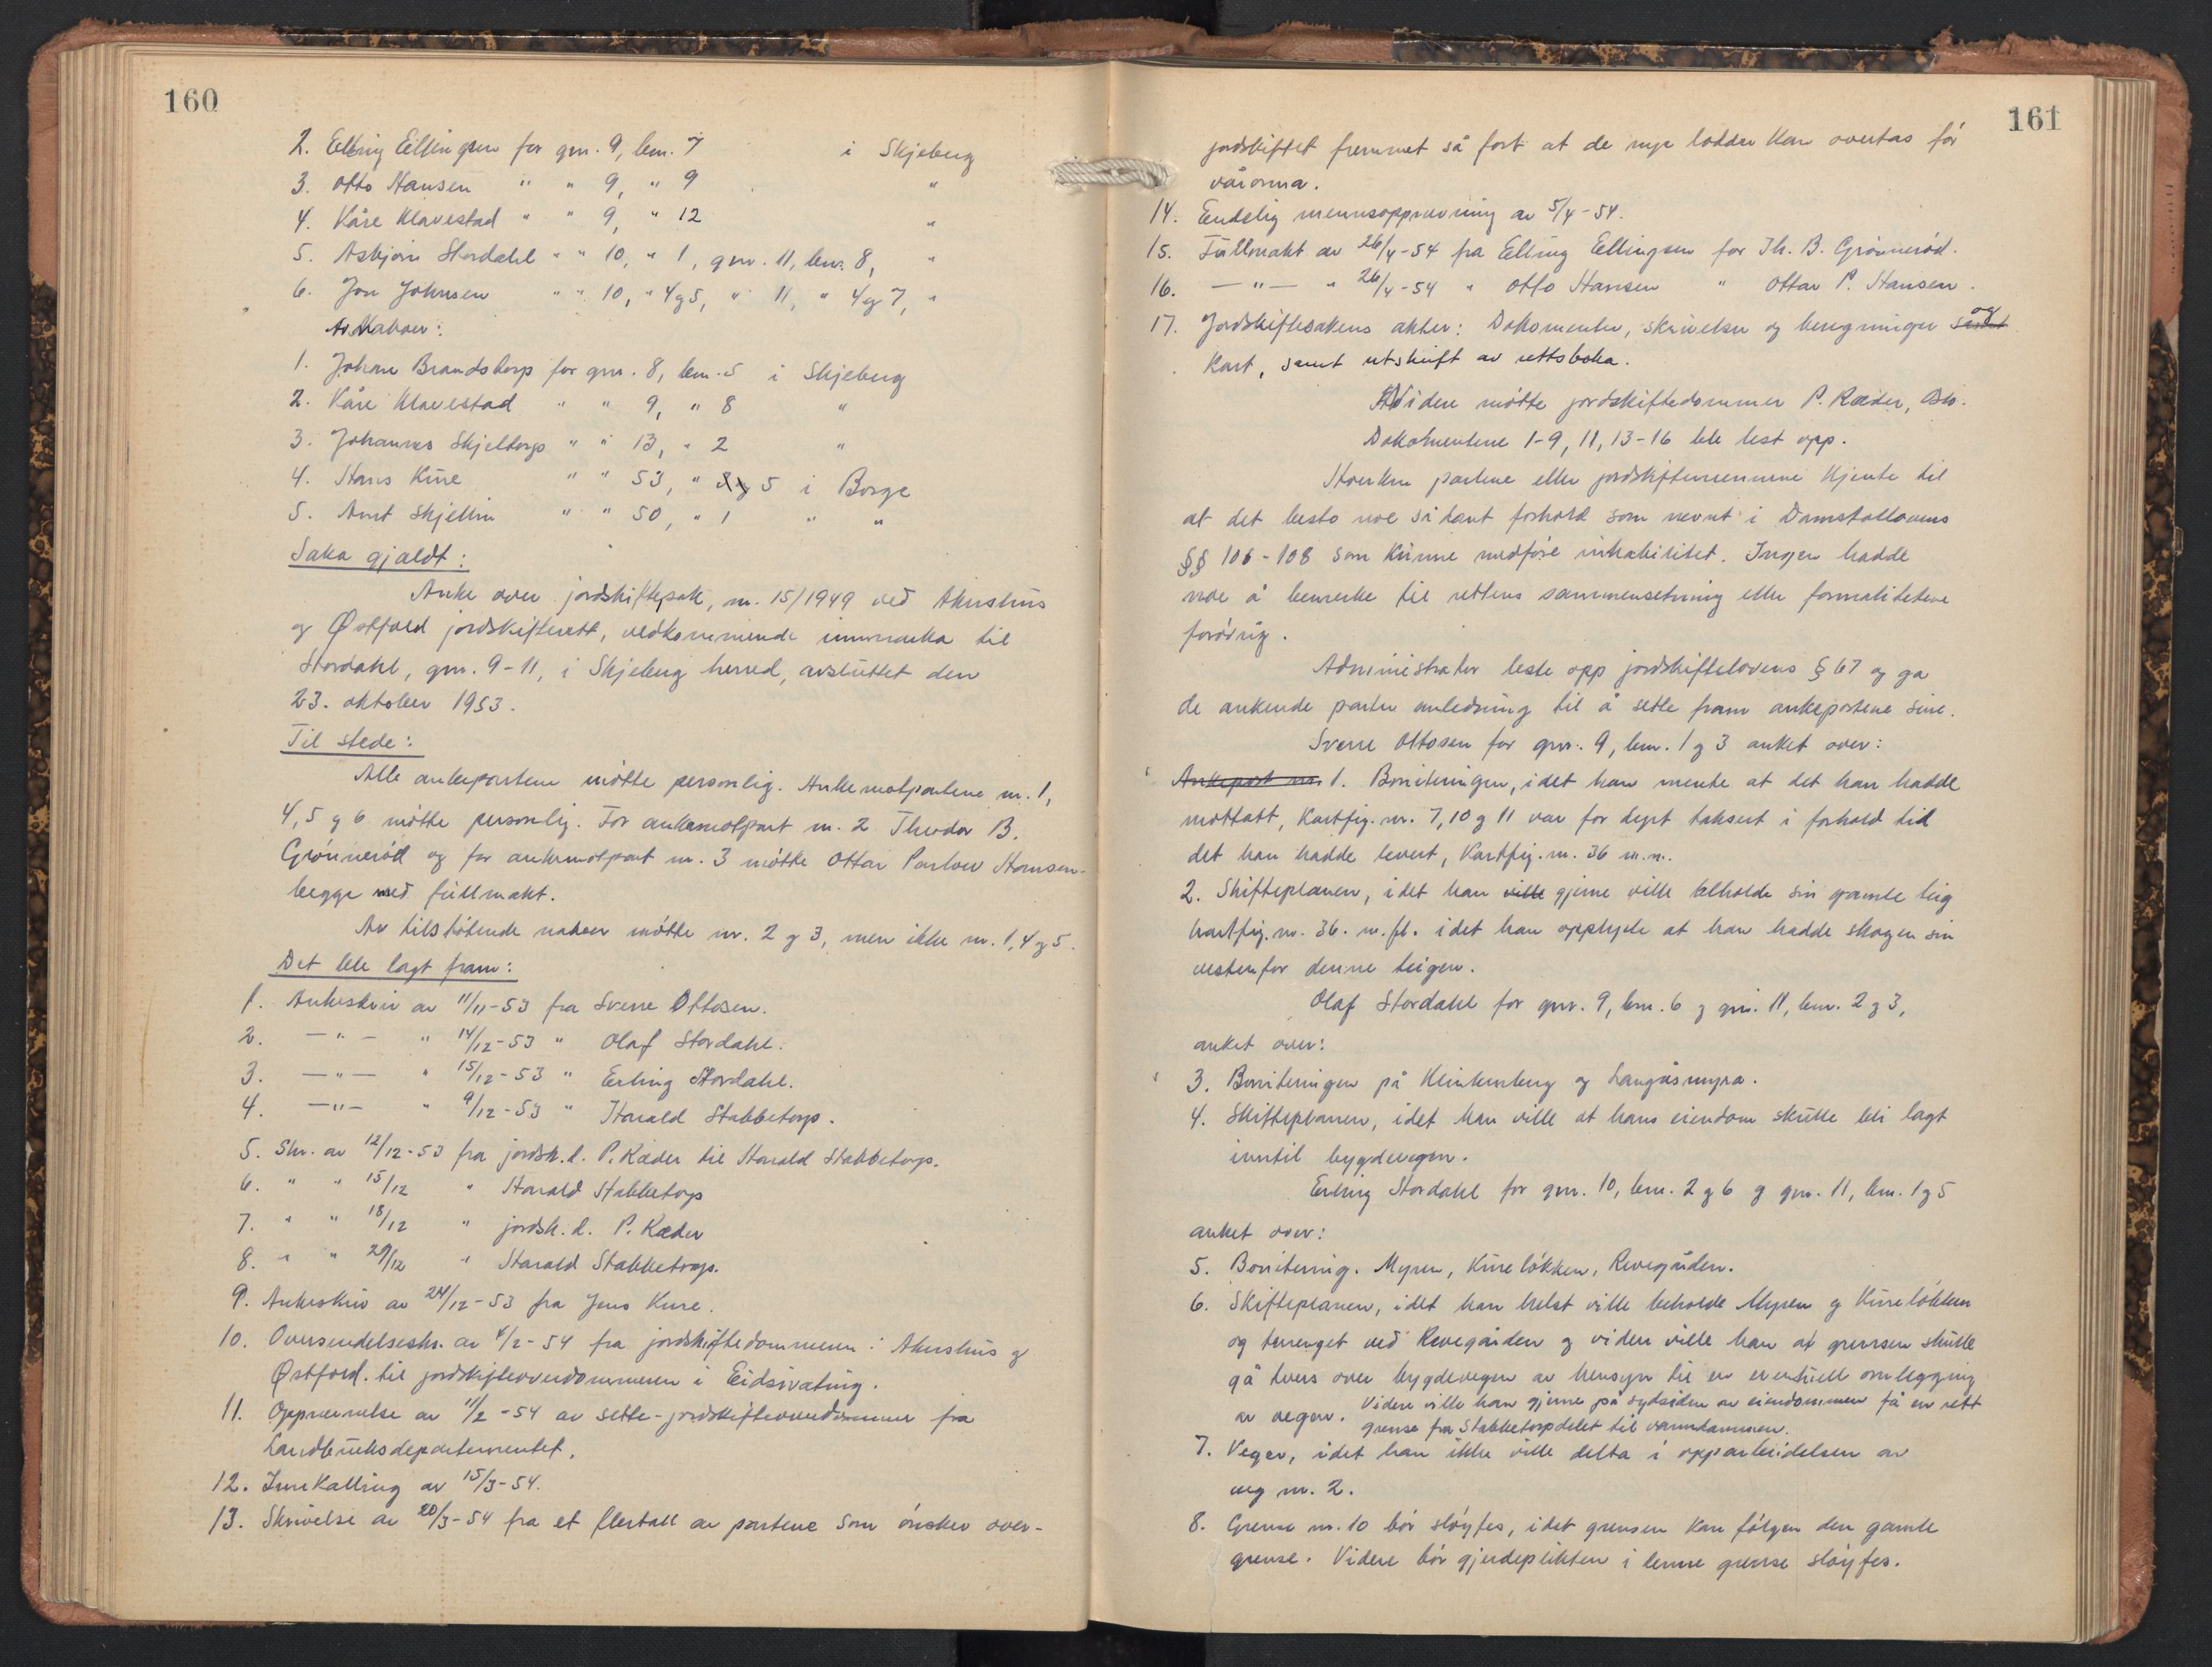 160
2. Elling Ellingsen for gnr. 9, bnr. 7 i Skjeberg
3. Otto Hansen " " 9, " 9 "
4. Kåre Klavestad " " 9, " 12 "
5. Asbjørn Stordahl " " 10, " 1, gnr. 11, bnr. 8, "
6. Jon Johnsen " " 10, " 4 og 5, " 11, " 4 og 7, "
Av Naboer:
1. Johan Brandstorp for gnr. 8, bnr. 5 i Skjeberg
2. Kåre Klavestad " " 9, " 8 "
3. Johannes Skjeltorp " " 13, " 2 "
4. Hans Kure " " 53, " 5 i Borge
5. Arnt Skjellin " " 50, " 1 " "
Saka gjaldt:
Anke over jordskiftesak, nr. 15/1949 ved Akershus
og Østfold jordskifterett, vedkommende innmarka til
Stordahl, gnr. 9-11, i Skjeberg herred, avsluttet den
23. oktober 1953.
Til stede:
Alle ankepartene møtte personlig. Ankemotpartene nr. 1,
4, 5 og 6 møtte personlig. For ankemotpart nr. 2 Theodor B.
Grønnerød og for ankemotpart nr. 3 møtte Ottar Parlow Hansen -
begge med fullmakt.
Av tilstøtende naboer møtte nr. 2 og 3, men ikke nr. 1, 4 og 5.
Det ble lagt fram:
1. Ankeskriv av 11/11-53 fra Sverre Ottosen.
2. — " — " 14/12-53 " Olaf Stordahl.
3. — " — " 15/12-53 " Erling Stordahl.
4. — " — " 9/12-53 " Harald Stabbetorp.
5. Skr. av 12/12-53 fra jordsk.d. P. Ræder til Harald Stabbetorp.
6. " " 15/12 " Harald Stabbetorp
7. " " 18/12 " jordsk.d. P. Ræder
8. " " 29/12 " Harald Stabbetorp.
9. Ankeskriv av 24/12-53 fra Jens Kure.
10. Oversendelsesskr. av /2-54 fra jordskiftedommeren i Akershus og
Østfold. til jordskifteoverdommeren i Eidsivating.
11. Oppnevnelse av 11/2-54 av sette-jordskifteoverdommer fra
Landbruksdepartementet.
12. Innkalling av 15/3-54.
13. Skrivelse av 20/3-54 fra et flertall av partene som ønsker over-
161
jordskiftet fremmet så fort at de nye lodder kan overtas før
våronna.
14. Endelig mennsoppnevning av 5/4-54.
15. Fullmakt av 26/4-54 fra Elling Ellingsen for Th. B. Grønnerød.
16. — " — " 26/4-54 " Otto Hansen " Ottar P. Hansen.
17. Jordskiftesakens akter: Dokumenter, skrivelser og beregninger samt og
kart, samt utskrift av rettsboka.
Videre møtte jordskiftedommer P. Ræder, Oslo.
Dokumentene 1-9, 11, 13-16 ble lest opp.
Hverken partene eller jordskiftemennene kjente til
at det besto noe sådant forhold som nevnt i Domstollovens
§§ 106-108 som kunne medføre inhabilitet. Ingen hadde
noe å bemerke til rettens sammensetning eller formalitetene
forøvrig.
Administrator leste opp jordskiftelovens § 67 og ga
de ankende parter anledning til å sette fram ankepostene sine.
Sverre Ottosen for gnr. 9, bnr. 1 og 3 anket over:
Ankepost nr. 1. Boniteringen, idet han mente at det han hadde
mottatt, kartfig. nr. 7, 10 og 11 var for dyrt taksert i forhold til
det han hadde levert, kartfig. nr. 36 m.m.
2. Skifteplanen, idet han ville gjerne ville beholde sin gamle teig
kartfig. nr. 36. m.fl. idet han opplyste at han hadde skogen sin
vestenfor denne teigen.
Olaf Stordahl for gnr. 9, bnr. 6 og gnr. 11, bnr. 2 og 3,
anket over:
3. Boniteringen på Klinkenberg og Langåsmyra.
4. Skifteplanen, idet han ville at hans eiendom skulle bli lagt
inntil bygdevegen.
Erling Stordahl for gnr. 10, bnr. 2 og 6 og gnr. 11, bnr. 1 og 5
anket over:
5. Bonitering. Myren, Kureløkken, Revegården.
6. Skifteplanen, idet han helst ville beholde Myren og Kureløkken
og terrenget ved Revegården og videre ville han at grensen skulle
gå tvers over bygdevegen av hensyn til en eventuell omlegging
av vegen. Videre ville han gjerne på sydsiden av eiendommen få en rett
grense fra Stabbetorpdelet til vanndammen.
7. Veger, idet han ikke ville delta i opparbeidelsen av
veg nr. 2.
8. Grense nr. 10 bør sløyfes, idet grensen kan følge den gamle
grense. Videre bør gjerdeplikten i denne grense sløyfes.